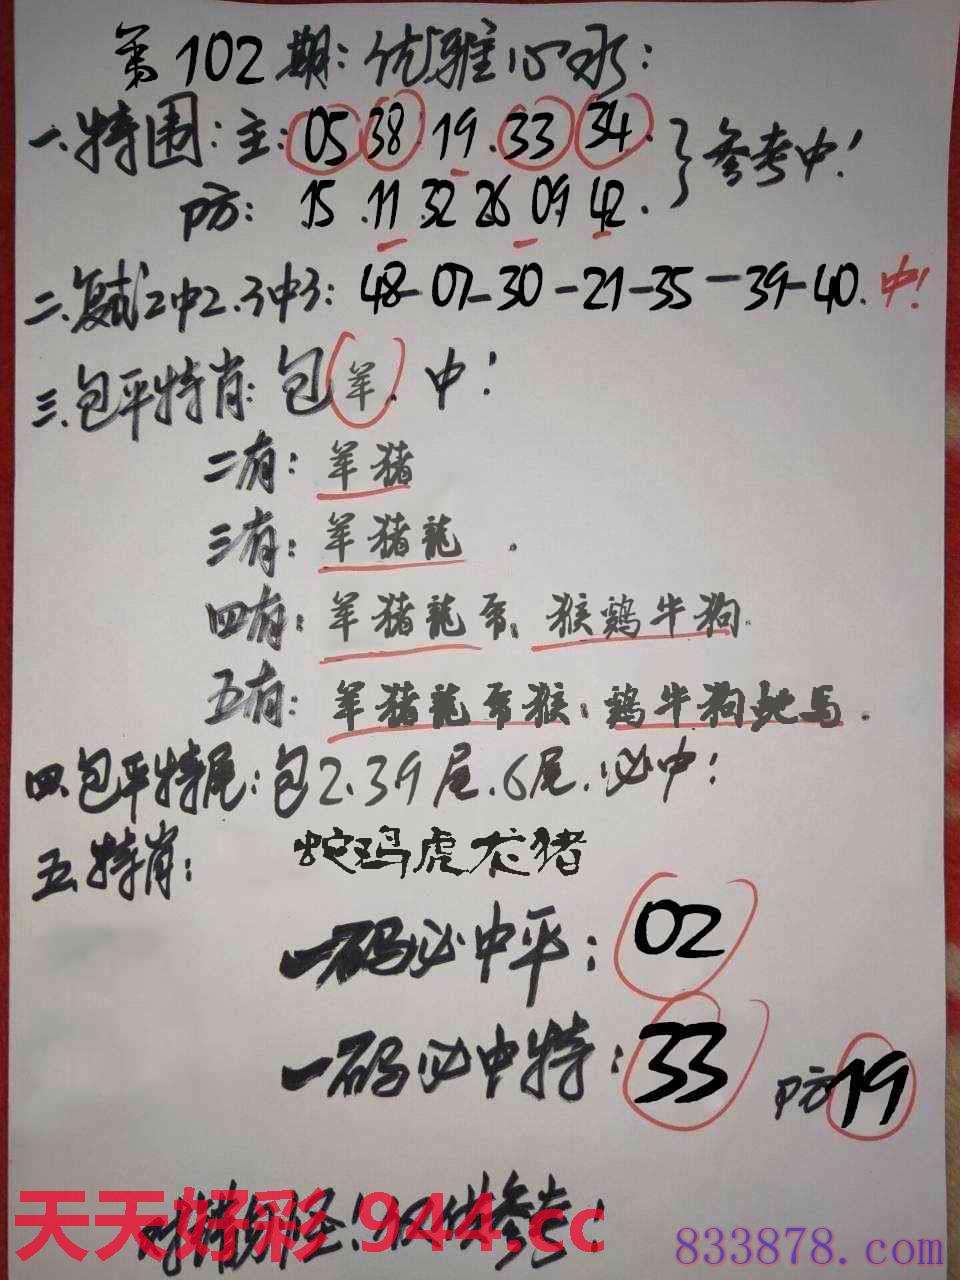 第102期:优雅心水:
一.特围:主:05 38 19.33 34.}参考中!
防: 15.11 32 26 09 42.
二.复式2中2.3中3: 48-07-30-21-35-39-40.中!
三.包平特肖:包羊.中!
二有:羊猪
三有:羊猪龍.
四有:羊猪龍 猴鷄牛狗.
五有:羊猪龍 猴.鷄牛狗蛇马.
四.包平特尾:包2.39尾.6尾.必中!
五.特肖: 蛇鸡虎龙猪
一码必中平:02
一码必中特:33 防19
天天好彩.944.cc
仅供参考!
833878.com